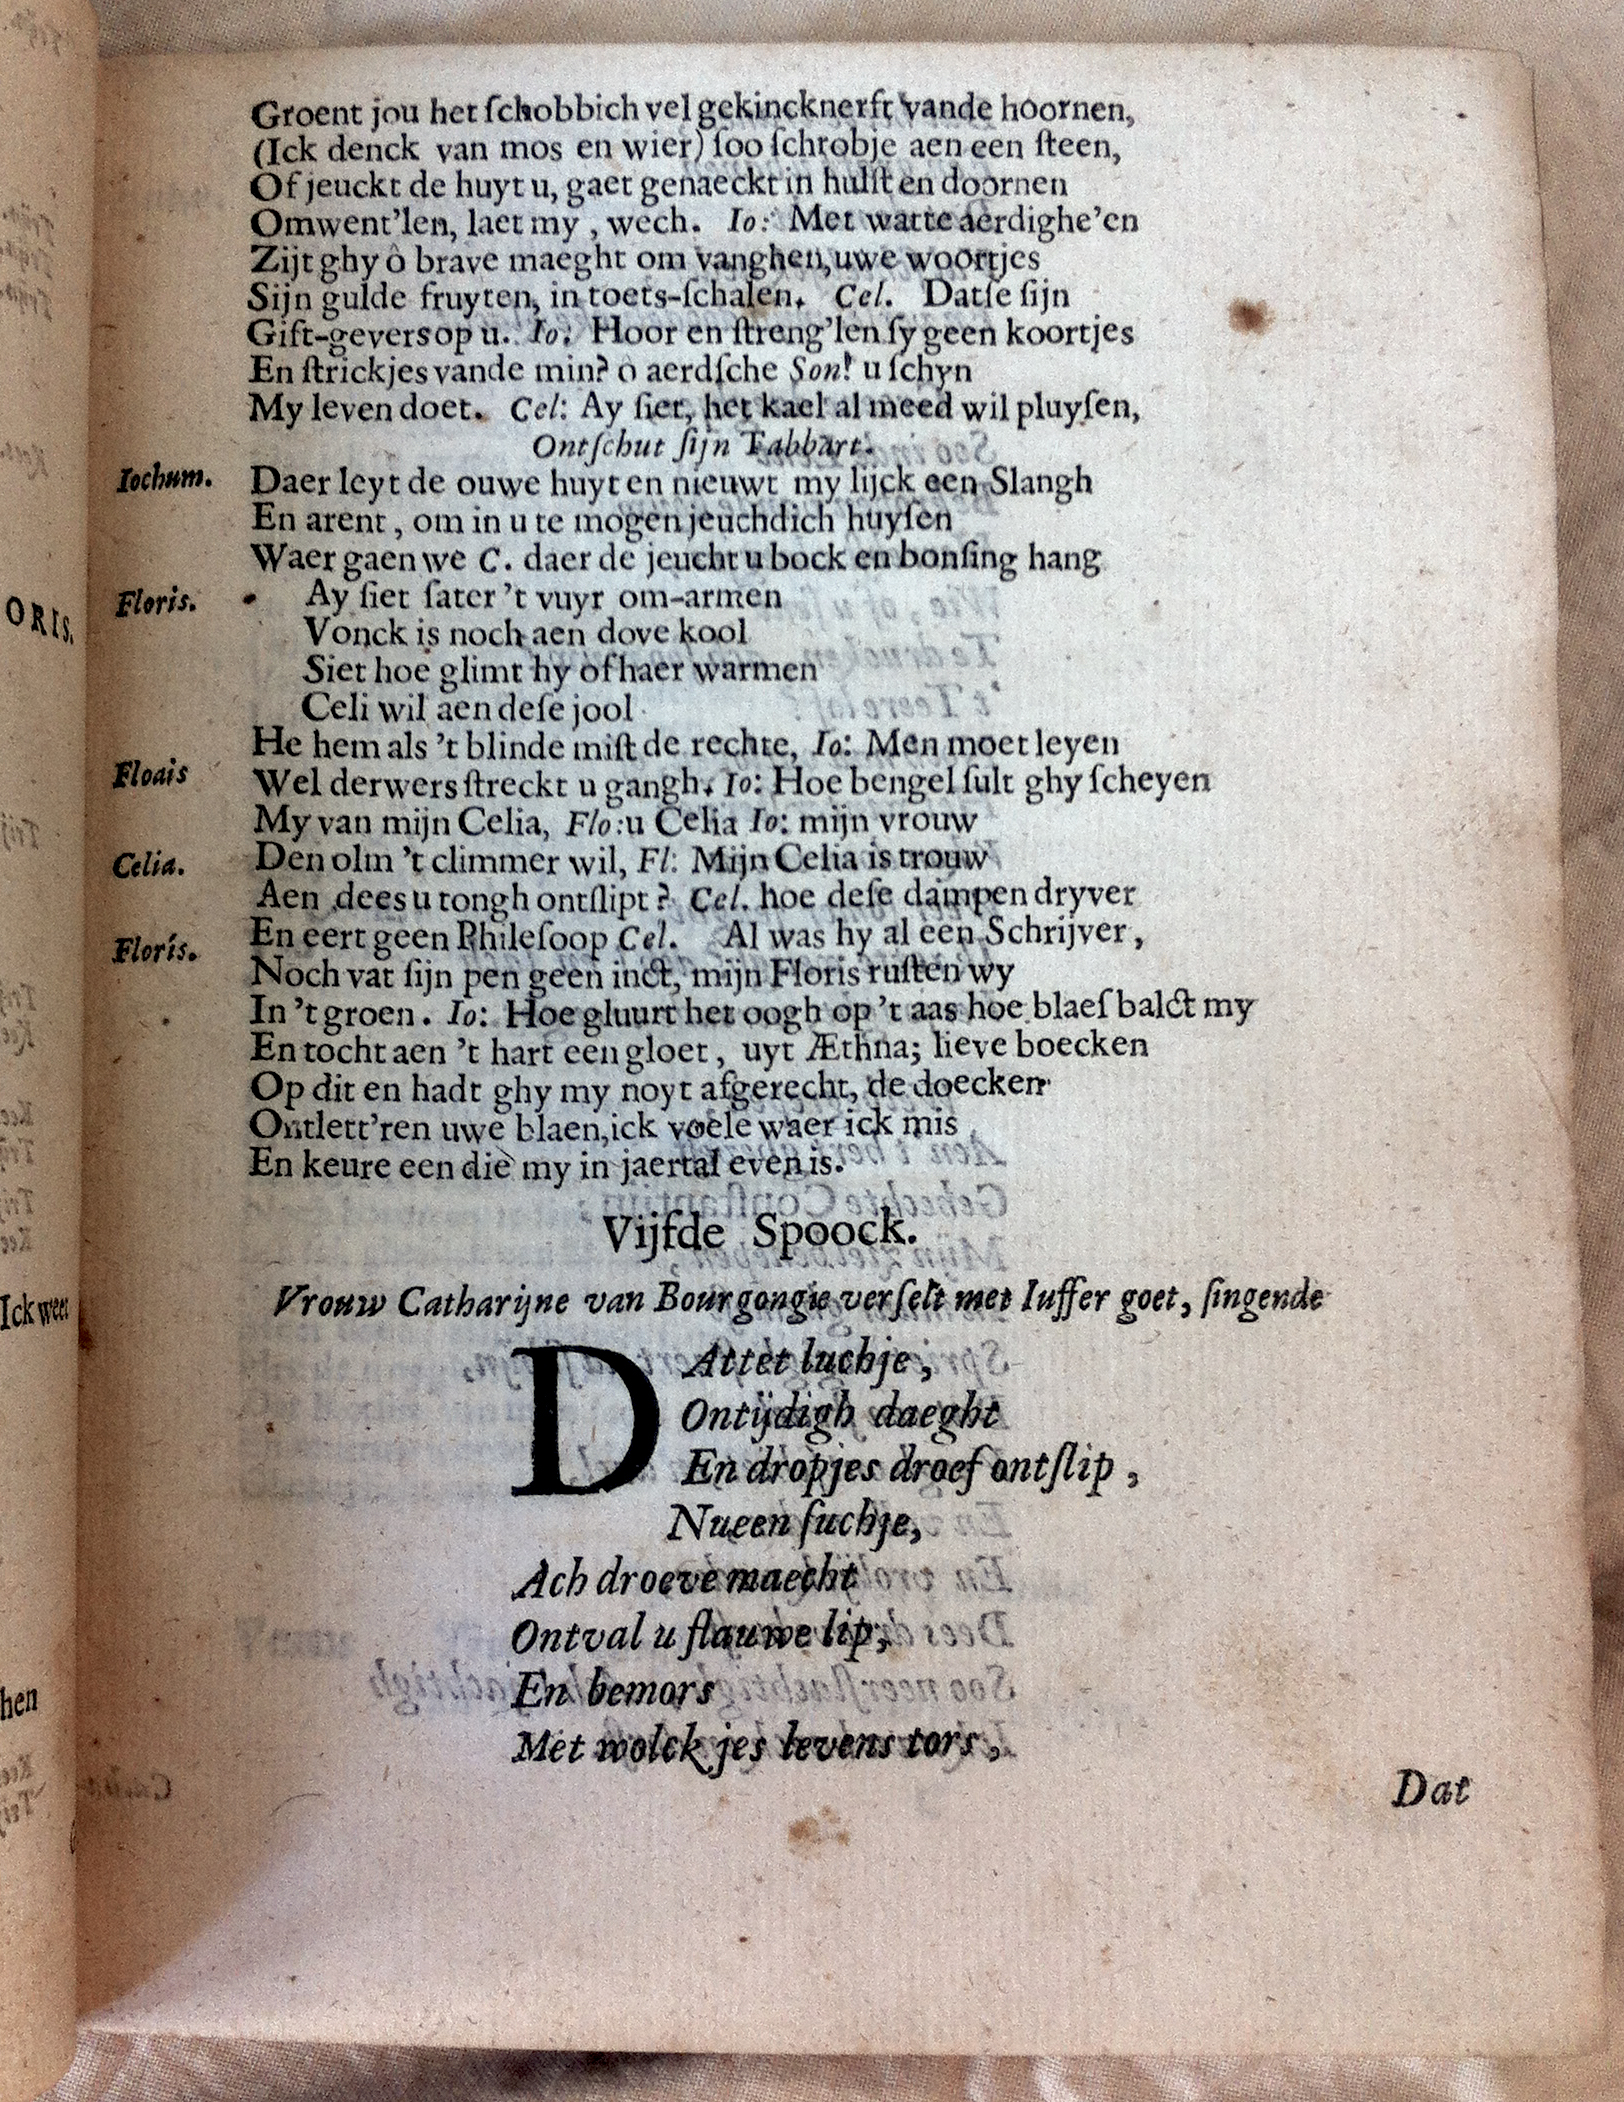 Groent jou het ſchobbich vel gekincknerft vande hoornen,
(Ick denck van mos en wier) ſoo ſchrobje aen een ſteen,
Of jeuckt de huyt u, gaet genaeckt in hulſt en doornen
Omwent'len, laet my , wech. Io: Met watte aerdighe'en
Zijt ghy ô brave maeght om vanghen, uwe woortjes
Sijn gulde fruyten, in toets-ſchalen. Cel. Datſe ſijn
Gift-gevers op u. Io: Hoor en ſtreng'len ſy geen koortjes
En ſtrickjes vande min? o aerdſche Son! u ſchyn
My leven doet. Cel: Ay ſiet, het kael al meed wil pluyſen,
Ontſchut ſijn Tabbart.
Iochum. Daer leyt de ouwe huyt en nieuwt my lijck een Slangh
En arent, om in u te mogen jeuchdich huyſen
Waer gaen we C. daer de jeucht u bock en bonſing hang
Floris. Ay ſiet ſater 't vuyr om-armen
Vonck is noch aen dove kool
Siet hoe glimt hy of haer warmen
Celi wil aen deſe jool
He hem als 't blinde miſt de rechte, Io: Men moet leyen
Floais Wel derwers ſtreckt u gangh. Io: Hoe bengel ſult ghy ſcheyen
My van mijn Celia, Flo: u Celia Io: mijn vrouw
Celia. Den olm 't climmer wil, Fl: Mijn Celia is trouw
Aen dees u tongh ontſlipt? Cel. hoe deſe dampen dryver
Floris. En eert geen Phileſoop Cel. Al was hy al een Schrijver,
Noch vat ſijn pen geen inct, mijn Floris ruſten wy
In 't groen. Io: Hoe gluurt het oogh op 't aas hoe blaeſ balct my
En tocht aen 't hart een gloet, uyt Æthna; lieve boecken
Op dit en hadt ghy my noyt afgerecht, de doecken
Ontlett'ren uwe blaen, ick voele waer ick mis
En keure een die my in jaertal even is.
Vijfde Spoock.
Vrouw Catharijne van Bourgongie verſelt met Iuffer goet, ſingende
DAttet luchje,
Ontijdigh daeght
En dropjes droef ontſlip,
Nu een ſuchje,
Ach droeve maecht
Ontval u flauwe lip,
En bemors
Met wolck jes levens tors,
Dat
ORIS.
Ick weet
hen